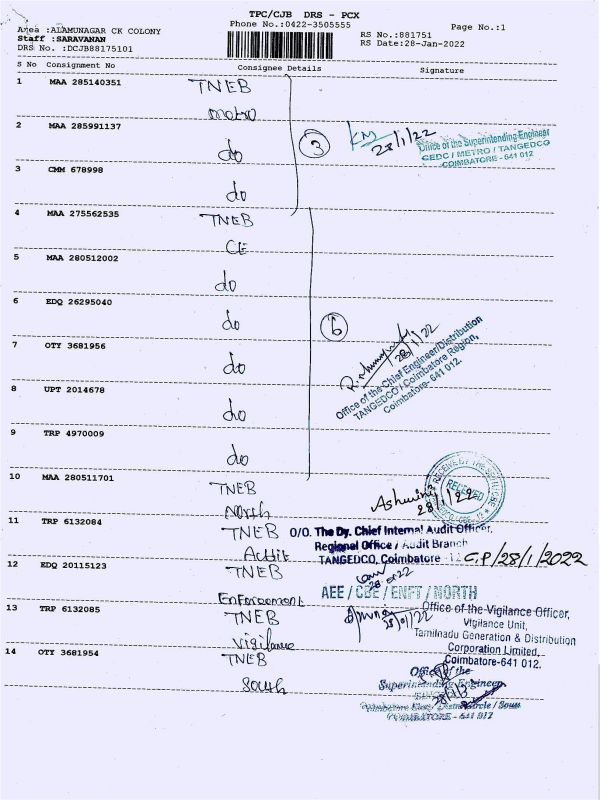 TPC/CJB DRS - PCX
Phone No.:0422-3505555
Page No.:1
Area :ALAMUNAGAR CK COLONY
Staff :SARAVANAN
DRS No. :DCJB88175101
RS No.:881751
RS Date:28-Jan-2022
S No Consignment No Consignee Details Signature
1 MAA 285140351 TNEB
metro
2 MAA 285991137 do
3 28/1/22
Office of the Superintending Engineer
CEDC / METRO / TANGEDCO
COIMBATORE - 641 012
3 CMM 678998 do
4 MAA 275562535 TNEB
CE
5 MAA 280512002 do
6 EDQ 26295040 do
6
28/1/22
Office of the Chief Engineer/Distribution
TANGEDCO / Coimbatore Region,
Coimbatore- 641 012.
7 OTY 3681956 do
8 UPT 2014678 do
9 TRP 4970009 do
10 MAA 280511701 TNEB
North
RECEIVED
Ashwini
28/1/22
11 TRP 6132084 TNEB
Audit
O/O. The Dy. Chief Internal Audit Officer,
Regional Office / Audit Branch
TANGEDCO, Coimbatore - 12
C.P/28/1/2022
12 EDQ 20115123 TNEB
Enforcement
AEE / CBE / ENFT / NORTH
13 TRP 6132085 TNEB
Vigilance
28/01/22
Office of the Vigilance Officer,
Vigilance Unit,
Tamilnadu Generation & Distribution
Corporation Limited,
Coimbatore-641 012.
14 OTY 3681954 TNEB
South
Office of the
Superintending Engineer
COIMBATORE - 641 012